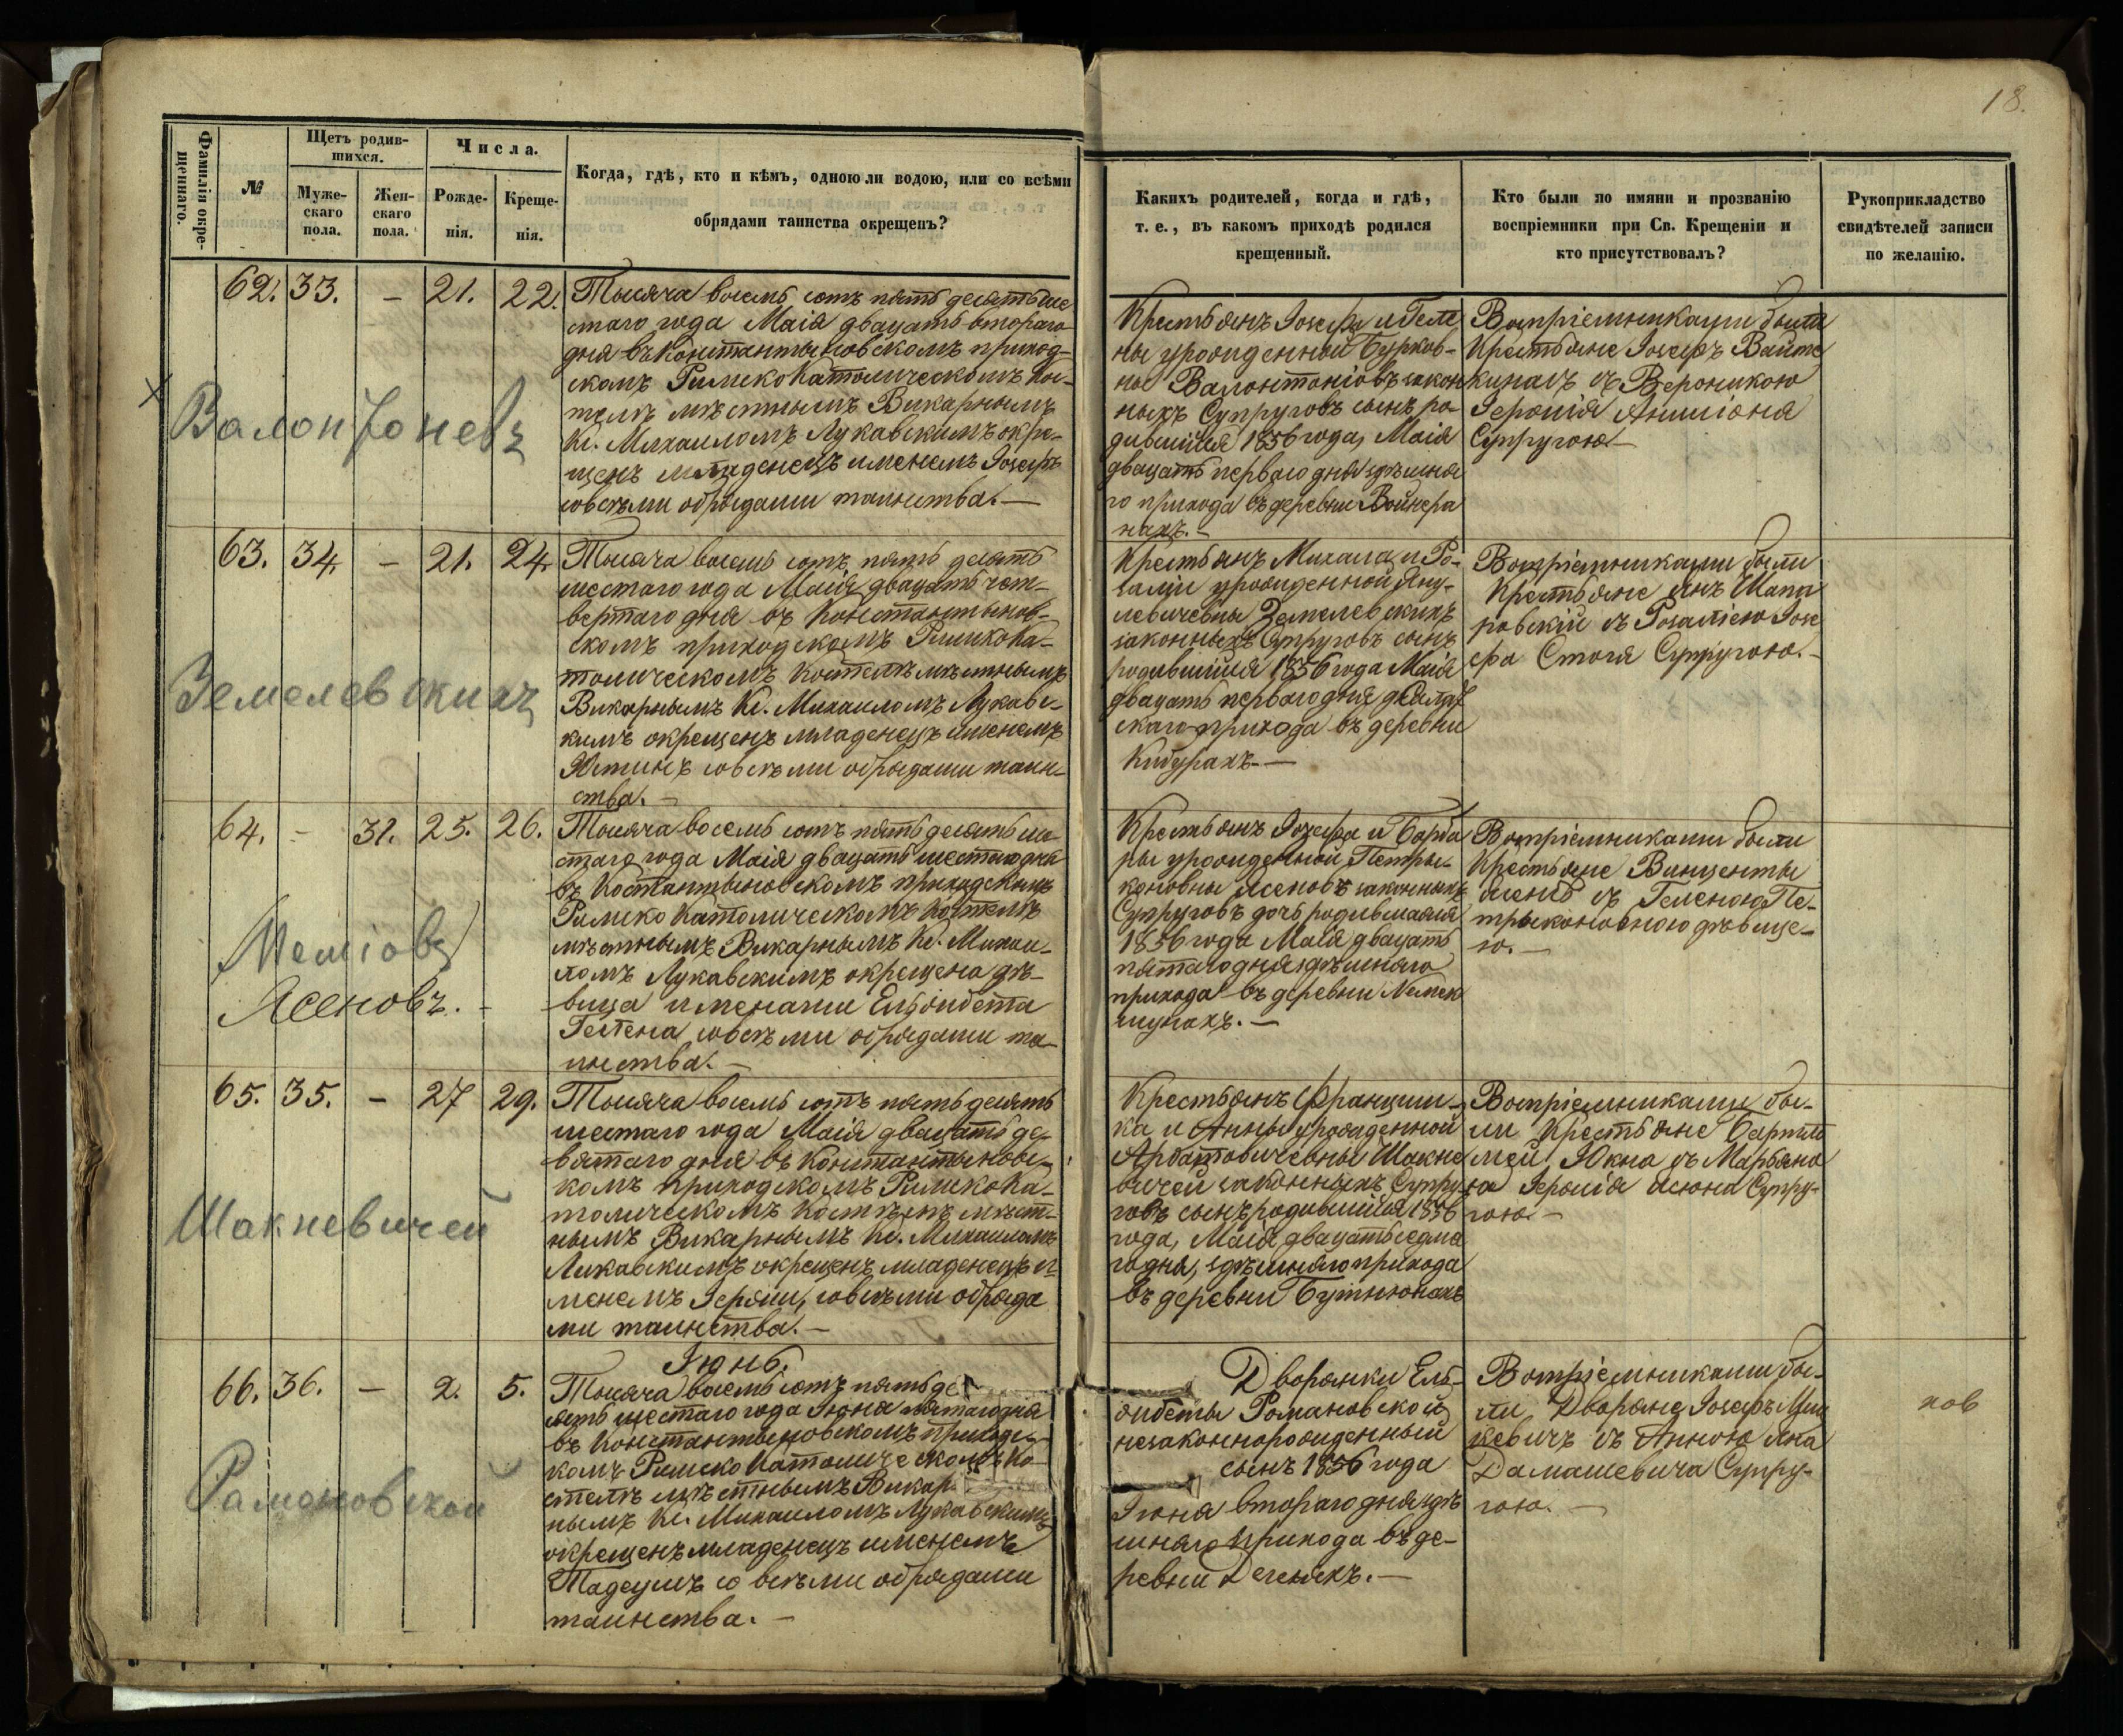 18.
Фамилія окре-
щеннаго.
№
Щетъ родив-
шихся.
Муже-
скаго
пола.
Жен-
скаго
пола.
Числа.
Рожде-
нія.
Креще-
нія.
Когда, гдѣ, кто и кѣмъ, одною ли водою, или со всѣми
обрядами таинства окрещенъ?
Какихъ родителей, когда и гдѣ,
т. е., въ какомъ приходѣ родился
крещенный.
Кто были по имяни и прозванію
воспріемники при Св. Крещеніи и
кто присутствовалъ?
Рукоприкладство
свидѣтелей записи
по желанію.
62. 33. – 21. 22.
Тысяча восемь сотъ пять десять ше
стаго года Маія двацать втораго
дня въ Константыновскомъ приход-
скомъ Римско Католическомъ кос-
телѣ мѣстнымъ Викарнымъ
Кс. Михаиломъ Лукавскимъ окре-
щенъ младенецъ именемъ Іосефъ
совсѣми обрядами таинства. —
Крестьянъ Іосефа и Геле
ны урожденной Бурков-
ны Валонтоніовъ закон
ныхъ Супруговъ сынъ ро-
дившійся 1856 года, Маія
двацать перваго дня здѣшня
го прихода въ деревни Войнера
нахъ. –
Воспріемниками были
Крестьяне Іосефъ Войте
кунасъ съ Вероникою
Іероніма
Супругою. –
63. 34. – 21. 24.
Тысяча восемь сотъ пять десять
шестаго года Маія двацать чет-
вертаго дня въ Константынов-
скомъ приходскомъ Римскока-
толическомъ Костелѣ мѣстнымъ
Викарнымъ Кс. Михаиломъ Лукавс-
кимъ окрещенъ младенецъ именемъ
Юстинъ совсѣми обрядами таин-
ства. –
Крестьянъ Михала и Ро-
заліи урожденной Яну-
левичевны Земелевскихъ
законныхъ Супруговъ сынъ
родившійся 1856 года Маія
двацать перваго дня
скаго прихода въ деревни
Кибурахъ. —
Воспріемниками были
Крестьяне Янъ Шапа
ровскій съ Розаліею Іосе
фа Стося Супругою. –
64. – 31. 25. 26.
Тысяча восемь сотъ пять десять ше
стаго года Маія двацать шестаго дня
въ Костантыновскомъ приходскомъ
Римско Католическомъ Костелѣ
мѣстнымъ Викарнымъ Кс. Михаи-
ломъ Лукавскимъ окрещена дѣ-
вица именами Ельжбета
Гелена совсѣми обрядами та-
инства. –
Крестьянъ Іозефа и Барба
ры урожденной Петры-
коновны Ясеновъ законныхъ
Супруговъ дочь родившаяся
1856 года Маія двацать
пятаго дня здѣшняго
прихода въ деревни Немек
шунахъ. —
Воспріемниками были
Крестьяне Винценты
Ясень съ Геленою Пе-
трыконовною дѣвице-
ю. –
65. 35. – 27 29.
Тысяча восемь сотъ пять десять
шестаго года Маія двацать де-
вятаго дня въ Константыновс-
комъ приходскомъ Римскока-
толическомъ Костелѣ мѣст-
нымъ Викарнымъ Кс. Михаиломъ
Лукавскимъ окрещенъ младенецъ и-
менемъ Іеронім, совсѣми обряда
ми таинства. –
Крестьянъ Францим-
ка и Анны урожденной
Арбатовичевны Шакне
вичей законныхъ Супру-
говъ сынъ родившійся 1856
года, Маія двацать седма
го дня, здѣшняго прихода
въ деревни Бутнюнахъ
Воспріемниками бы-
ли Крестьяне Бартло
мей Юкна съ Марьяно
ю Іероніма Ясюна Супру-
гою. –
Іюнь.
66. 36. – 2. 5.
Тысяча восемь сотъ пять де
сять шестаго года Іюня пятаго дня
въ Константыновскомъ приходс-
комъ Римско Католическомъ Ко-
стелѣ мѣстнымъ Викар
нымъ Кс. Михаиломъ Лукавскимъ
окрещенъ младенецъ именемъ
Тадеушъ со всѣми обрядами
таинства. –
Дворянки Ель-
жбеты Романовской
незаконнорожденный
сынъ 1856 года
Іюня втораго дня здѣ
шняго прихода въ де-
ревни Дегеняхъ. –
Воспріемниками бы-
ли Дворяне Іосефъ Миц
кевичъ съ Анною Яна
Дамашевича Супру-
гою. –
Валонтоневъ
Земелевскихъ
Ясеновъ. -
Шакневичей
Рамановской